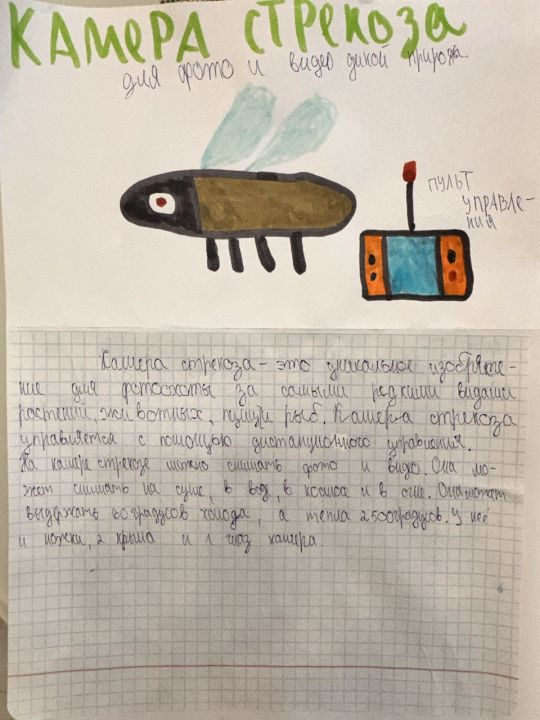 КАМЕРА СТРЕКОЗА
для фото и видео дикой природы
ПУЛЬТ
УПРАВЛЕ-
НИЯ
Камера стрекоза - это уникальное изобряте-
ние для фотоохоты за самыми редкими видами
растений, животных, птиц и рыб. Камера стрекоза
управляется с помощью дистанционного управления.
На камере стрекозе можно снимать фото и видо. Она мо-
жет снимать на суше, в воде, в космосе и в огне. Она может
выдержать 60 градусов холода, а тепла 2500 градусов. У неё
ножки, 2 крыла и 1 глаз камера.